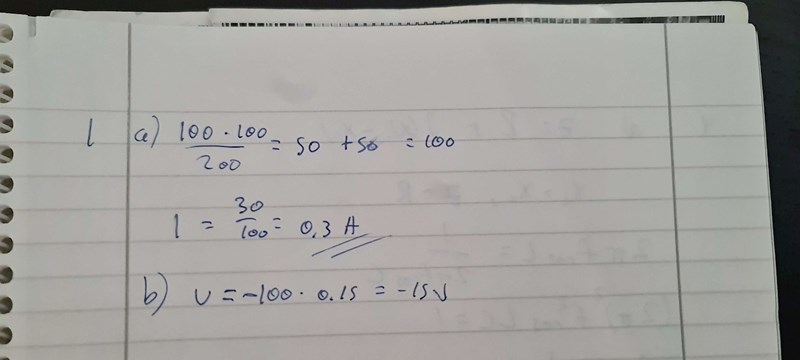 1 a) 100 · 100 / 200 = 50 + 50 = 100
I = 30 / 100 = 0,3 A
b) U = -100 · 0.15 = -15V